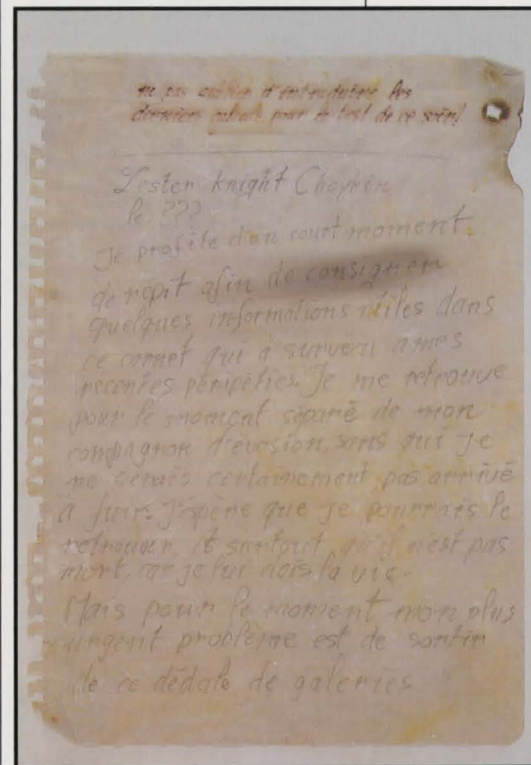 ne pas oublier d'introduire les
derniers calculs pour le test de ce soir!
Lester Knight Chaykin
le ???
Je profite d'un court moment
de répit afin de consigner
quelques informations utiles dans
ce carnet qui à survécu a mes
recentes péripéties. Je me retrouve
pour le moment séparé de mon
compagnon d'évasion, sans qui je
ne serais certainement pas arrivé
à fuir. J'éspère que je pourrais le
retrouver, et surtout qu'il n'est pas
mort, car je lui dois la vie.
Mais pour le moment mon plus
urgent problème est de sortir
de ce dédale de galeries